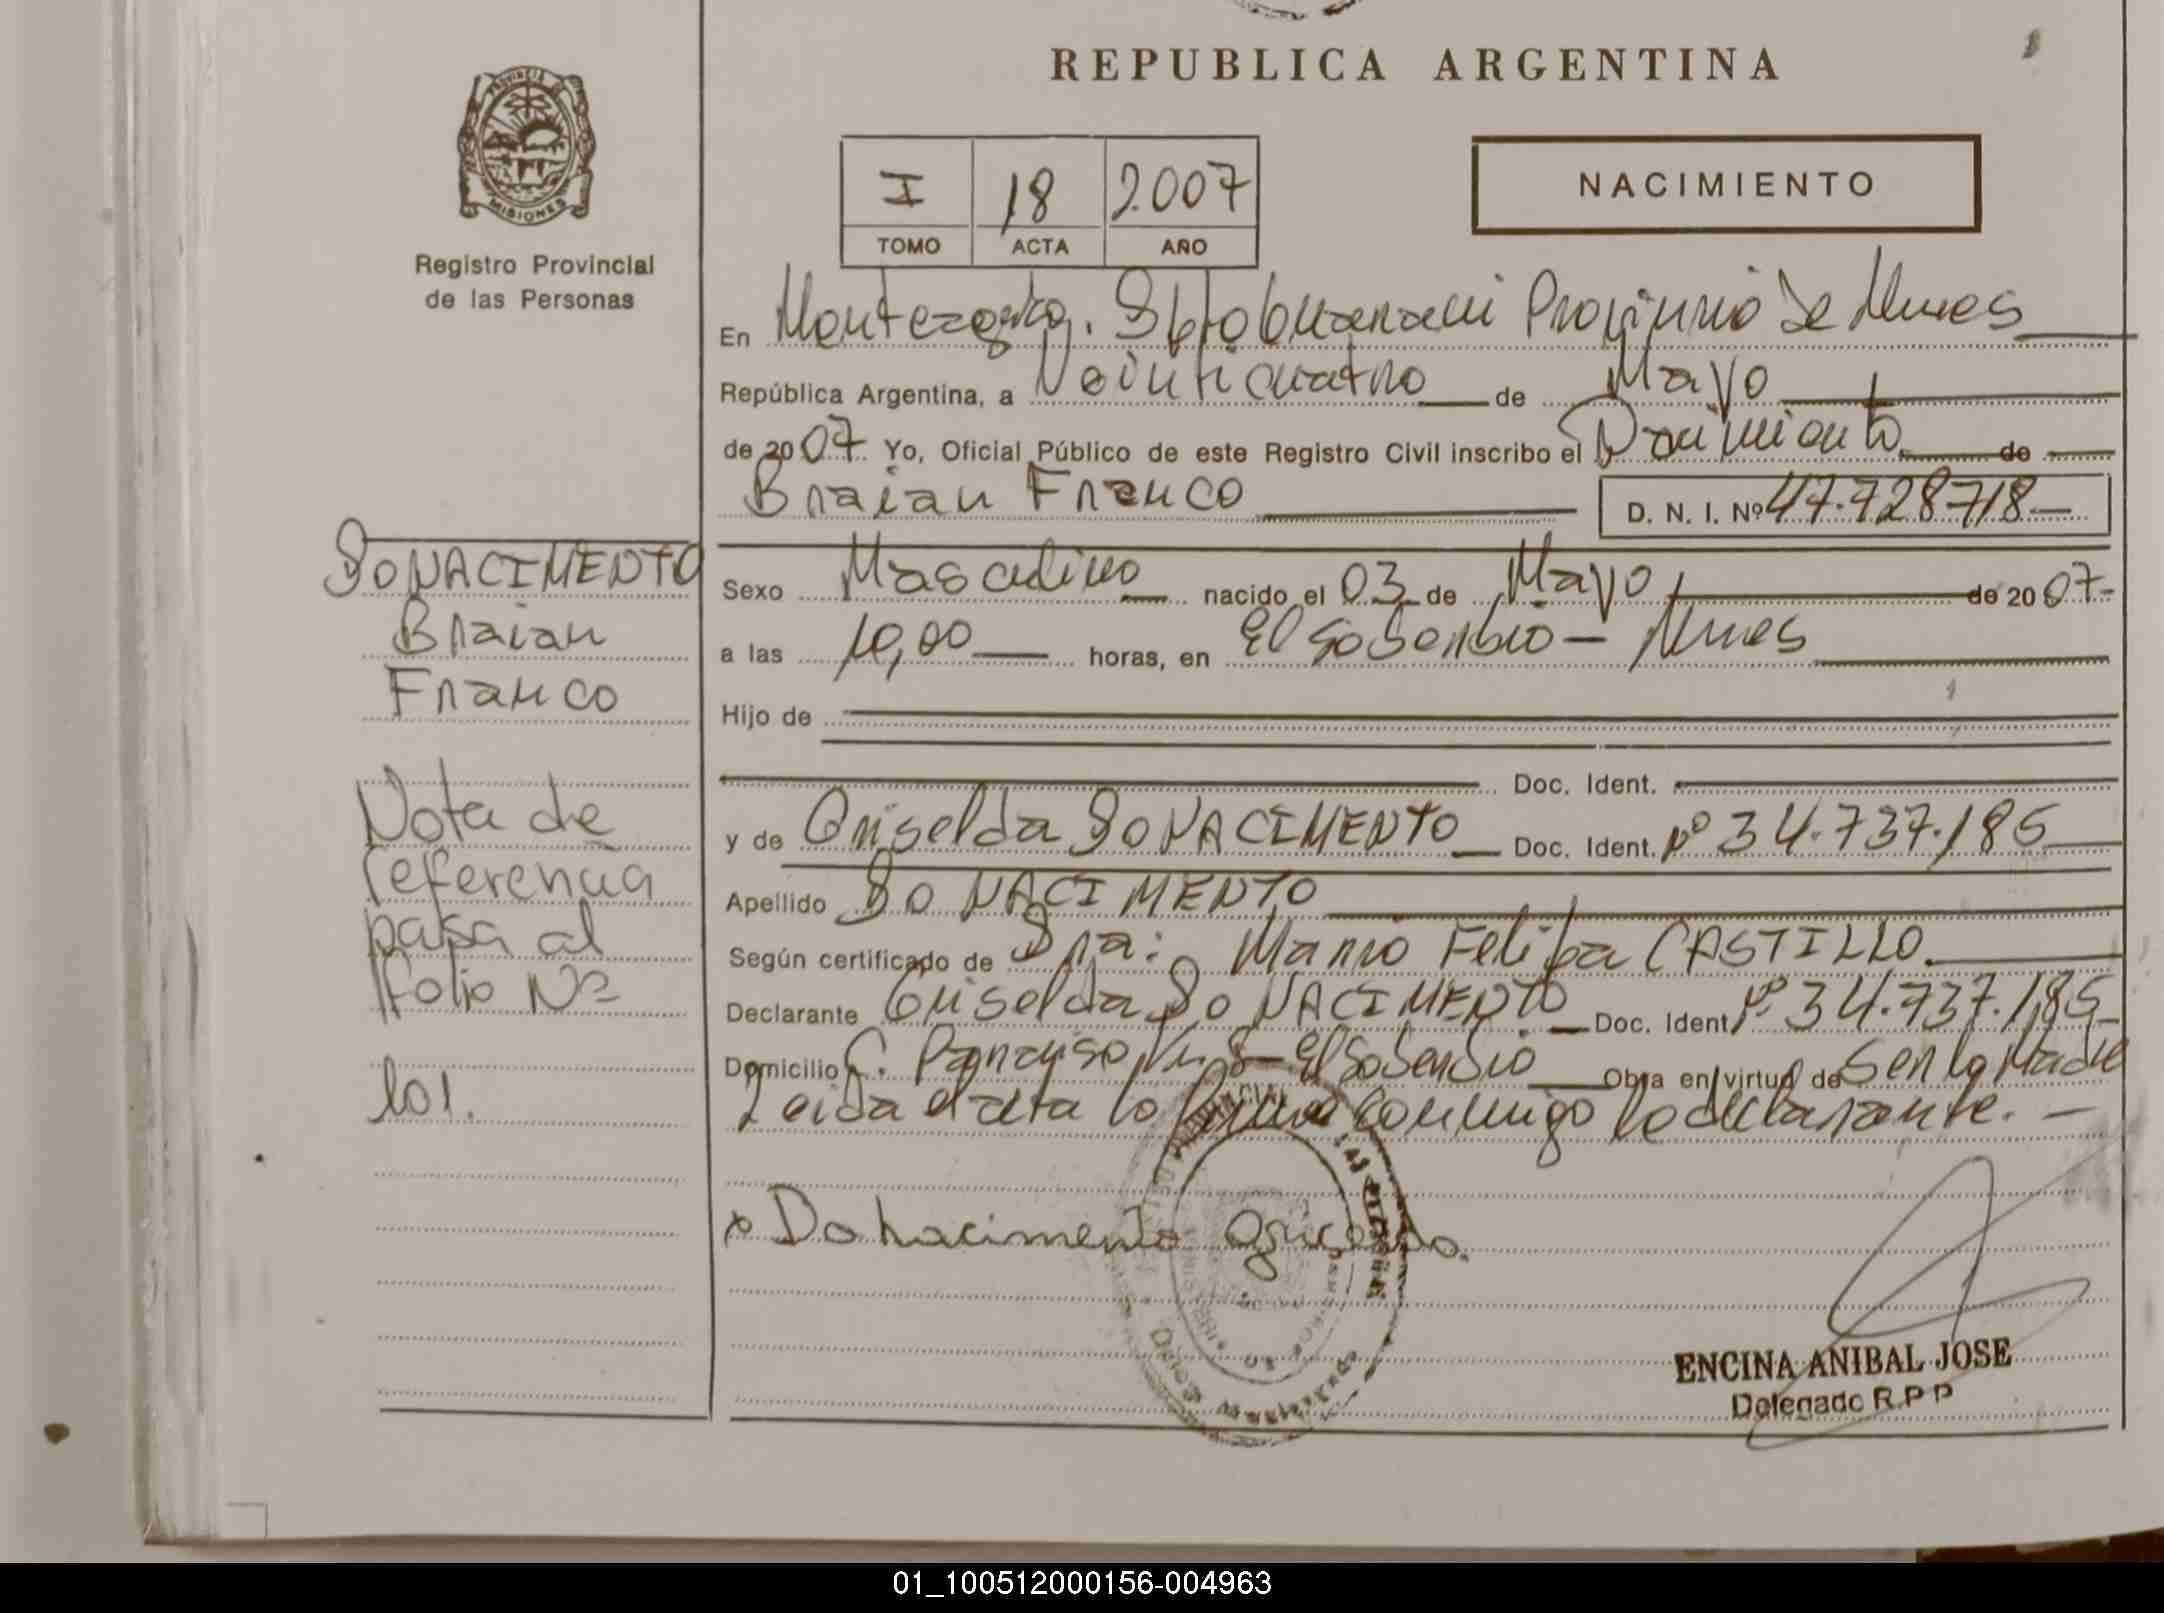 REPUBLICA ARGENTINA
PROVINCIA DE
MISIONES
Registro Provincial
de las Personas
I 18 2007
TOMO ACTA AÑO
NACIMIENTO
En Provincia de Mnes
República Argentina, a Veinticuatro de Mayo
de 2007 Yo, Oficial Público de este Registro Civil inscribo el de
Braian Franco D. N. I. Nº 47.728718
DO NACIMENTO
Braian
Franco
Sexo Masculino nacido el 03 de Mayo de 2007
a las 10,00 horas, en El Soberbio - Mnes
Hijo de
Doc. Ident.
y de Griselda DO NACIMENTO Doc. Ident. Nº 34.737.185
Apellido DO NACIMENTO
Según certificado de Sra: Felipa CASTILLO.
Declarante Griselda DO NACIMENTO Doc. Ident Nº 34.737.185
Domicilio C. Paraiso El Soberbio Obra en virtud de Ser la Madre
Leida el acta la firma conmigo la declarante.
Nota de
referencia
pasa al
folio Nº
101.
x Do nacimento
ENCINA ANIBAL JOSE
Delegado R.P.P
01_100512000156-004963